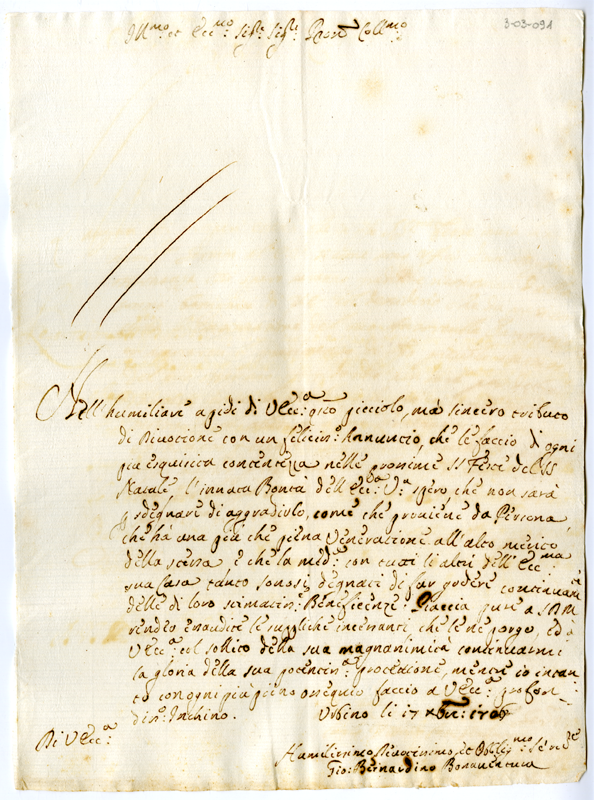 3-03-091
Ill.mo et Ecc.mo Sig.r Sig.re Pron Coll.mo
Nell'humiliare a pidi di V Ecc.a q.sto picciolo, mà sincero tributo
di Divotione con un felicis.o Annuncio, che le faccio d'ogni
più esquisita contentezza nelle prossime SS Feste del SS
Natale l'innata Bontà dell'Ecc.a V.a spero, che non sarà
p sdegnare di aggradirlo, come che proviene da Persona,
che hà una più che piena Veneratione all'alto merito
della stessa, e che la med.a con tutti li altri dell'Ecc.ma
sua Casa tanto sonosi degnati di far godere continuam.te
delle di loro stimatis.e Beneficenze. Piaccia pure a
render esaudite le suppliche incessanti, che le ne porgo, ed à
V Ecc.a col solito della sua magnanimità continuarmi
la gloria della sua potentis.a protetione, mentre io intan
to con ogni più pieno ossequio faccio a V Ecc.a profon
dis.o Inchino. Urbino li 17 Xbre: 1706
Di V Ecc.a
Humilissimo Divotissimo, et Obblig.mo Se re
Gio: Bernardino Bonaventura